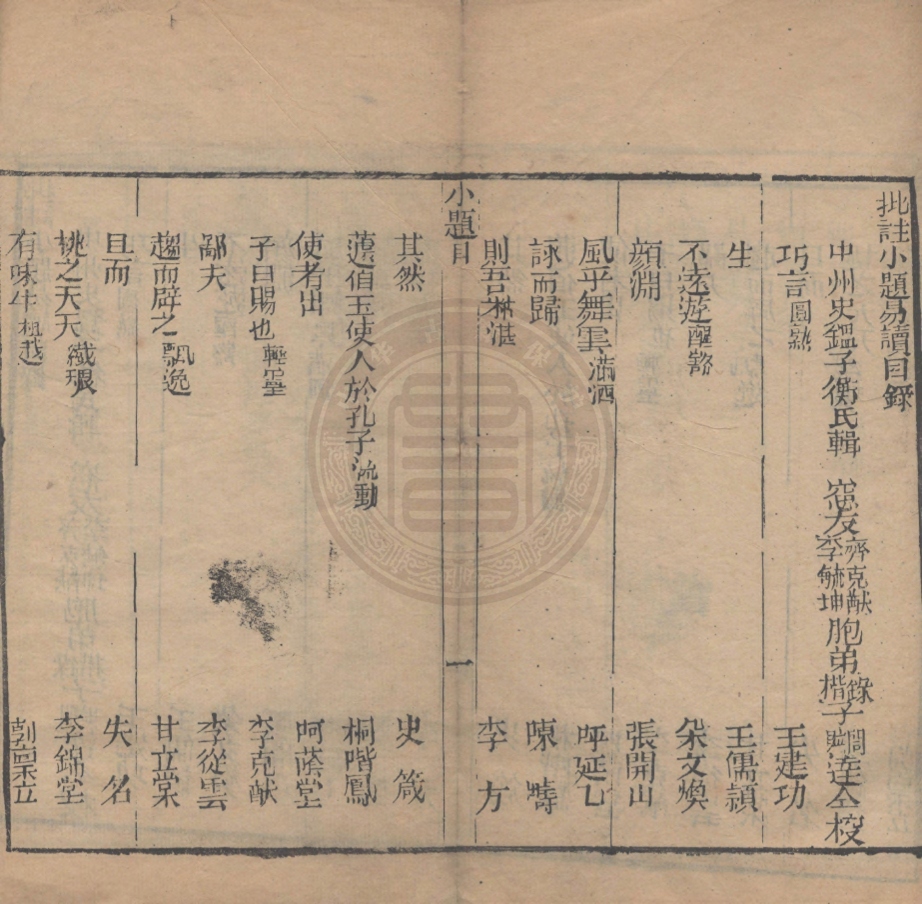 批註小題易讀目錄
中州史鑑子衡氏輯 窓友齊克猷李毓坤胞弟錄楷子達仝校
巧言圓熟 王建功
生 王儒穎
不遠遊醒豁 朱文煥
顏淵 張開山
風乎舞雩滿洒 呼延乙
詠而歸 陳疇
則吾淋湛 李方
小題目 一
其然 史箴
蘧伯玉使人於孔子流動 桐喈鳳
使者出 呵蔭堂
子曰賜也輕靈 李克猷
鄙夫 李從雲
趨而辟之飄逸 甘立棠
且而 失名
桃之夭夭纖 李錦堂
有咮牛